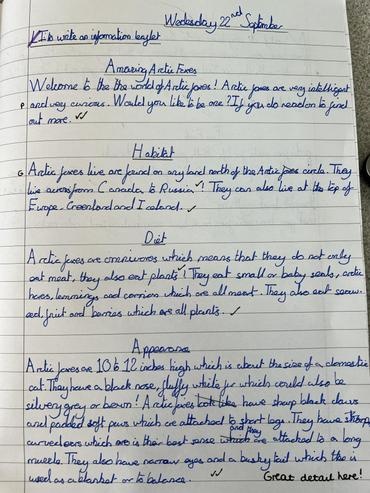 Wednesday 22nd September
I to write an information leaflet
Amazing Arctic Foxes
Welcome to the the world of Arctic foxes! Arctic foxes are very intelligent
P and very curious. Would you like to be one? If you do read on to find
out more.
Habitat
G Arctic foxes live are found on any land north of the Arctic foxes circle. They
live across from Canada to Russia! They can also live at the top of
Europe. Greenland and Iceland.
Diet
Arctic foxes are omnivores which means that they do not only
eat meat, they also eat plants! They eat small or baby seals, arctic
hares, lemmings and carrion which are all meat. They also eat seaw-
eed, fruit and berries which are all plants.
Appearance
Arctic foxes are 10 to 12 inches high which is about the size of a domestic
cat. They have a black nose, fluffy white fur which could also be
silvery grey or brown! Arctic foxes look like have sharp black claws
and padded soft paws which are attached to short legs. They have sharp
curved ears which are is their best sense which and they are attached to a long
muzzle. They also have narrow eyes and a bushy tail which the is
used as a blanket or to balance.
Great detail here!